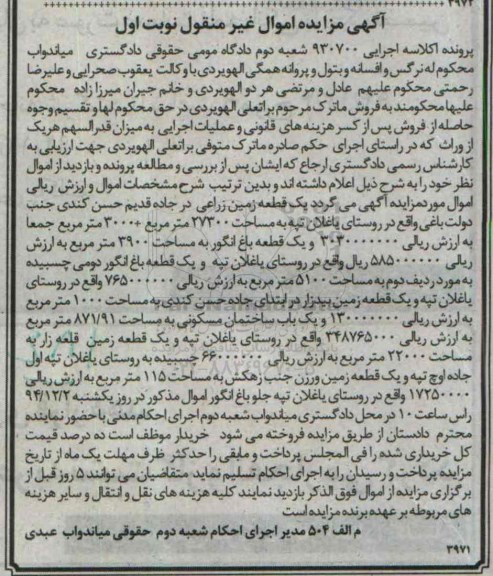 ۳۹۷۲
آگهی مزایده اموال غیر منقول نوبت اول
پرونده اکلاسه اجرایی ۹۳۰۷۰۰ شعبه دوم دادگاه مومی حقوقی دادگستری میاندواب
محکوم له نرگس و افسانه و بتول و پروانه همگی الهویردی با وکالت یعقوب صحرایی و علیرضا
رحمتی محکوم علیهم عادل و مرتضی هر دو الهویردی و خانم جیران میرزا زاده محکوم
علیها محکومند به فروش ماترک مرحوم براتعلی الهویردی در حق محکوم لها و تقسیم وجوه
حاصله از فروش پس از کسر هزینه های قانونی و عملیات اجرایی به میزان قدرالسهم هریک
از وراث که در راستای اجرای حکم صادره ماترک متوفی براتعلی الهویردی جهت ارزیابی به
کارشناس رسمی دادگستری ارجاع که ایشان پس از بررسی و مطالعه پرونده و بازدید از اموال
نظر خود را به شرح ذیل اعلام داشته اند و بدین ترتیب شرح مشخصات اموال و ارزش ریالی
اموال مورد مزایده آگهی می گردد یک قطعه زمین زراعی در جاده قدیم حسن کندی جنب
دولت باغی واقع در روستای یاغلان تپه به مساحت ۲۷۳۰۰ متر مربع +۳۰۰۰ متر مربع جمعا
به ارزش ریالی ۳۰۳۰۰۰۰۰۰۰ و یک قطعه باغ انگور به مساحت ۳۹۰۰ متر مربع به ارزش
ریالی ۵۸۵۰۰۰۰۰۰ ریال واقع در روستای یاغلان تپه و یک قطعه باغ انگور دومی چسبیده
به مورد ردیف دوم به مساحت ۵۱۰۰ متر مربع به ارزش ریالی ۷۶۵۰۰۰۰۰۰ واقع در روستای
یاغلان تپه و یک قطعه زمین بیدزار در ابتدای جاده حسن کندی به مساحت ۱۰۰۰ متر مربع
به ارزش ریالی ۱۳۰۰۰۰۰۰۰ و یک باب ساختمان مسکونی به مساحت ۸۷۱/۹۱ متر مربع
به ارزش ریالی ۳۴۸۷۶۵۰۰۰ واقع در روستای یاغلان تپه و یک قطعه زمین قلعه زار به
مساحت ۲۲۰۰۰ متر مربع به ارزش ریالی ۶۶۰۰۰۰۰۰۰ چسبیده به روستای یاغلان تپه اول
جاده اوچ تپه و یک قطعه زمین ورزن جنب زهکش به مساحت ۱۱۵ متر مربع به ارزش ریالی
۱۷۲۵۰۰۰۰ واقع در روستای یاغلان تپه جلو باغ انگور اموال مذکور در روز یکشنبه ۹۴/۱۲/۲
راس ساعت ۱۰ در محل دادگستری میاندواب شعبه دوم اجرای احکام مدنی با حضور نماینده
محترم دادستان از طریق مزایده فروخته می شود خریدار موظف است ده درصد قیمت
کل خریداری شده را فی المجلس پرداخت و مابقی را حداکثر ظرف مهلت یک ماه از تاریخ
مزایده پرداخت و رسیدان را به اجرای احکام تسلیم نماید. متقاضیان می توانند ۵ روز قبل از
برگزاری مزایده از اموال فوق الذکر بازدید نمایند کلیه هزینه های نقل و انتقال و سایر هزینه
های مربوطه بر عهده برنده مزایده است
م الف ۵۰۴ مدیر اجرای احکام شعبه دوم حقوقی میاندواب عبدی
۳۹۷۱